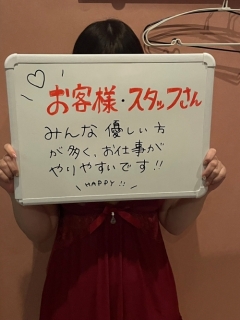 お客様・スタッフさん
みんな優しい方
が多く、お仕事が
やりやすいです!!
\ HAPPY!! /